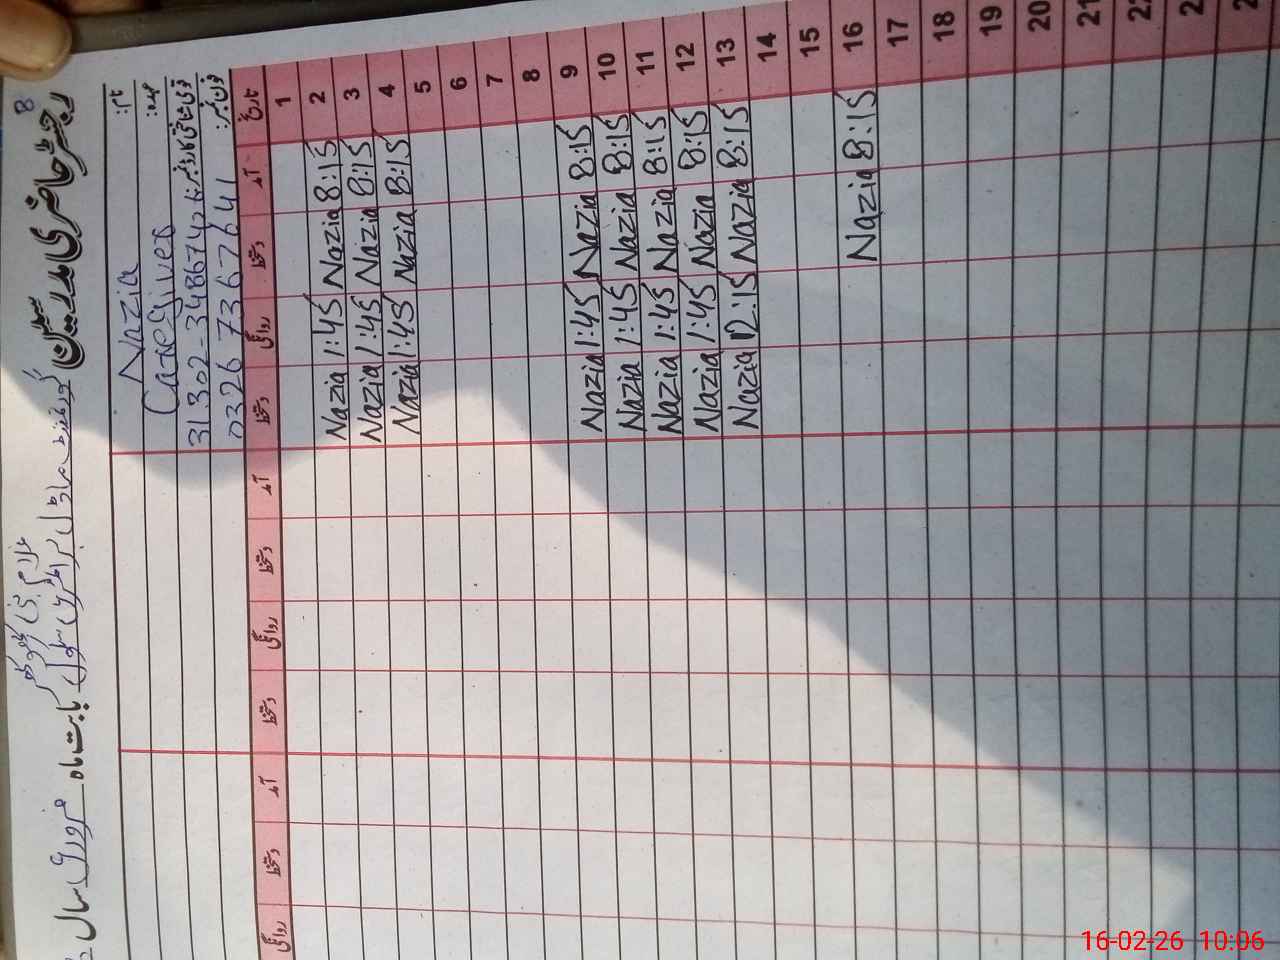 8
رجسٹر حاضری ملازمین سکول گورنمنٹ ماڈل پرائمری سکول بابت ماہ فروری سال
نام: Nazia
عہدہ: Caregiver
قومی شناختی کارڈ نمبر
فون نمبر: 0326 7367641
تاریخ آمد دستخط روانگی دستخط آمد دستخط روانگی دستخط آمد دستخط روانگی
1
2 8:15 Nazia 1:45 Nazia
3 8:15 Nazia 1:45 Nazia
4 8:15 Nazia 1:45 Nazia
5
6
7
8
9 8:15 Nazia 1:45 Nazia
10 8:15 Nazia 1:45 Nazia
11 8:15 Nazia 1:45 Nazia
12 8:15 Nazia 1:45 Nazia
13 8:15 Nazia 12:15 Nazia
14
15
16 8:15 Nazia
17
18
19
20
21
22
16-02-26 10:06